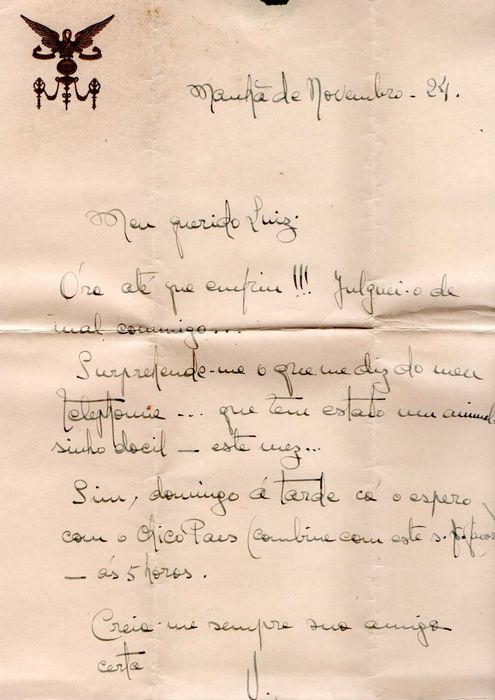 Manhã de Novembro - 24.
Meu querido Luiz:
Óra até que enfim!!! Julguei-o de
mal commigo...
Surprehende-me o que me diz do meu
telephone ... que tem estado um animal-
sinho docil - este mez...
Sim, domingo á tarde cá o espero
com o Chico Paes (combine com este s. f. favor)
- ás 5 horas.
Creia-me sempre sua amiga
certa
V.